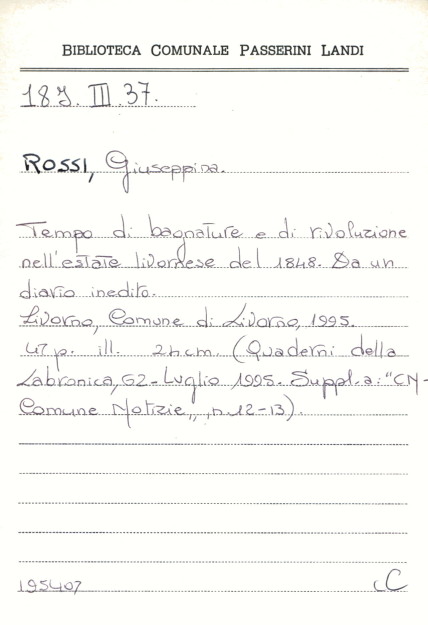 BIBLIOTECA COMUNALE PASSERINI LANDI
18J. III.37.
ROSSI, Giuseppina.
Tempo di bagnature e di rivoluzione
nell'estate livornese del 1848. Da un
diario inedito.
Livorno, Comune di Livorno, 1995.
47 p. ill. 24 cm. (Quaderni della
Labronica, 62 - Luglio 1995. Suppl. a: "CN -
Comune Notizie,, , n. 12-13).
195407
C